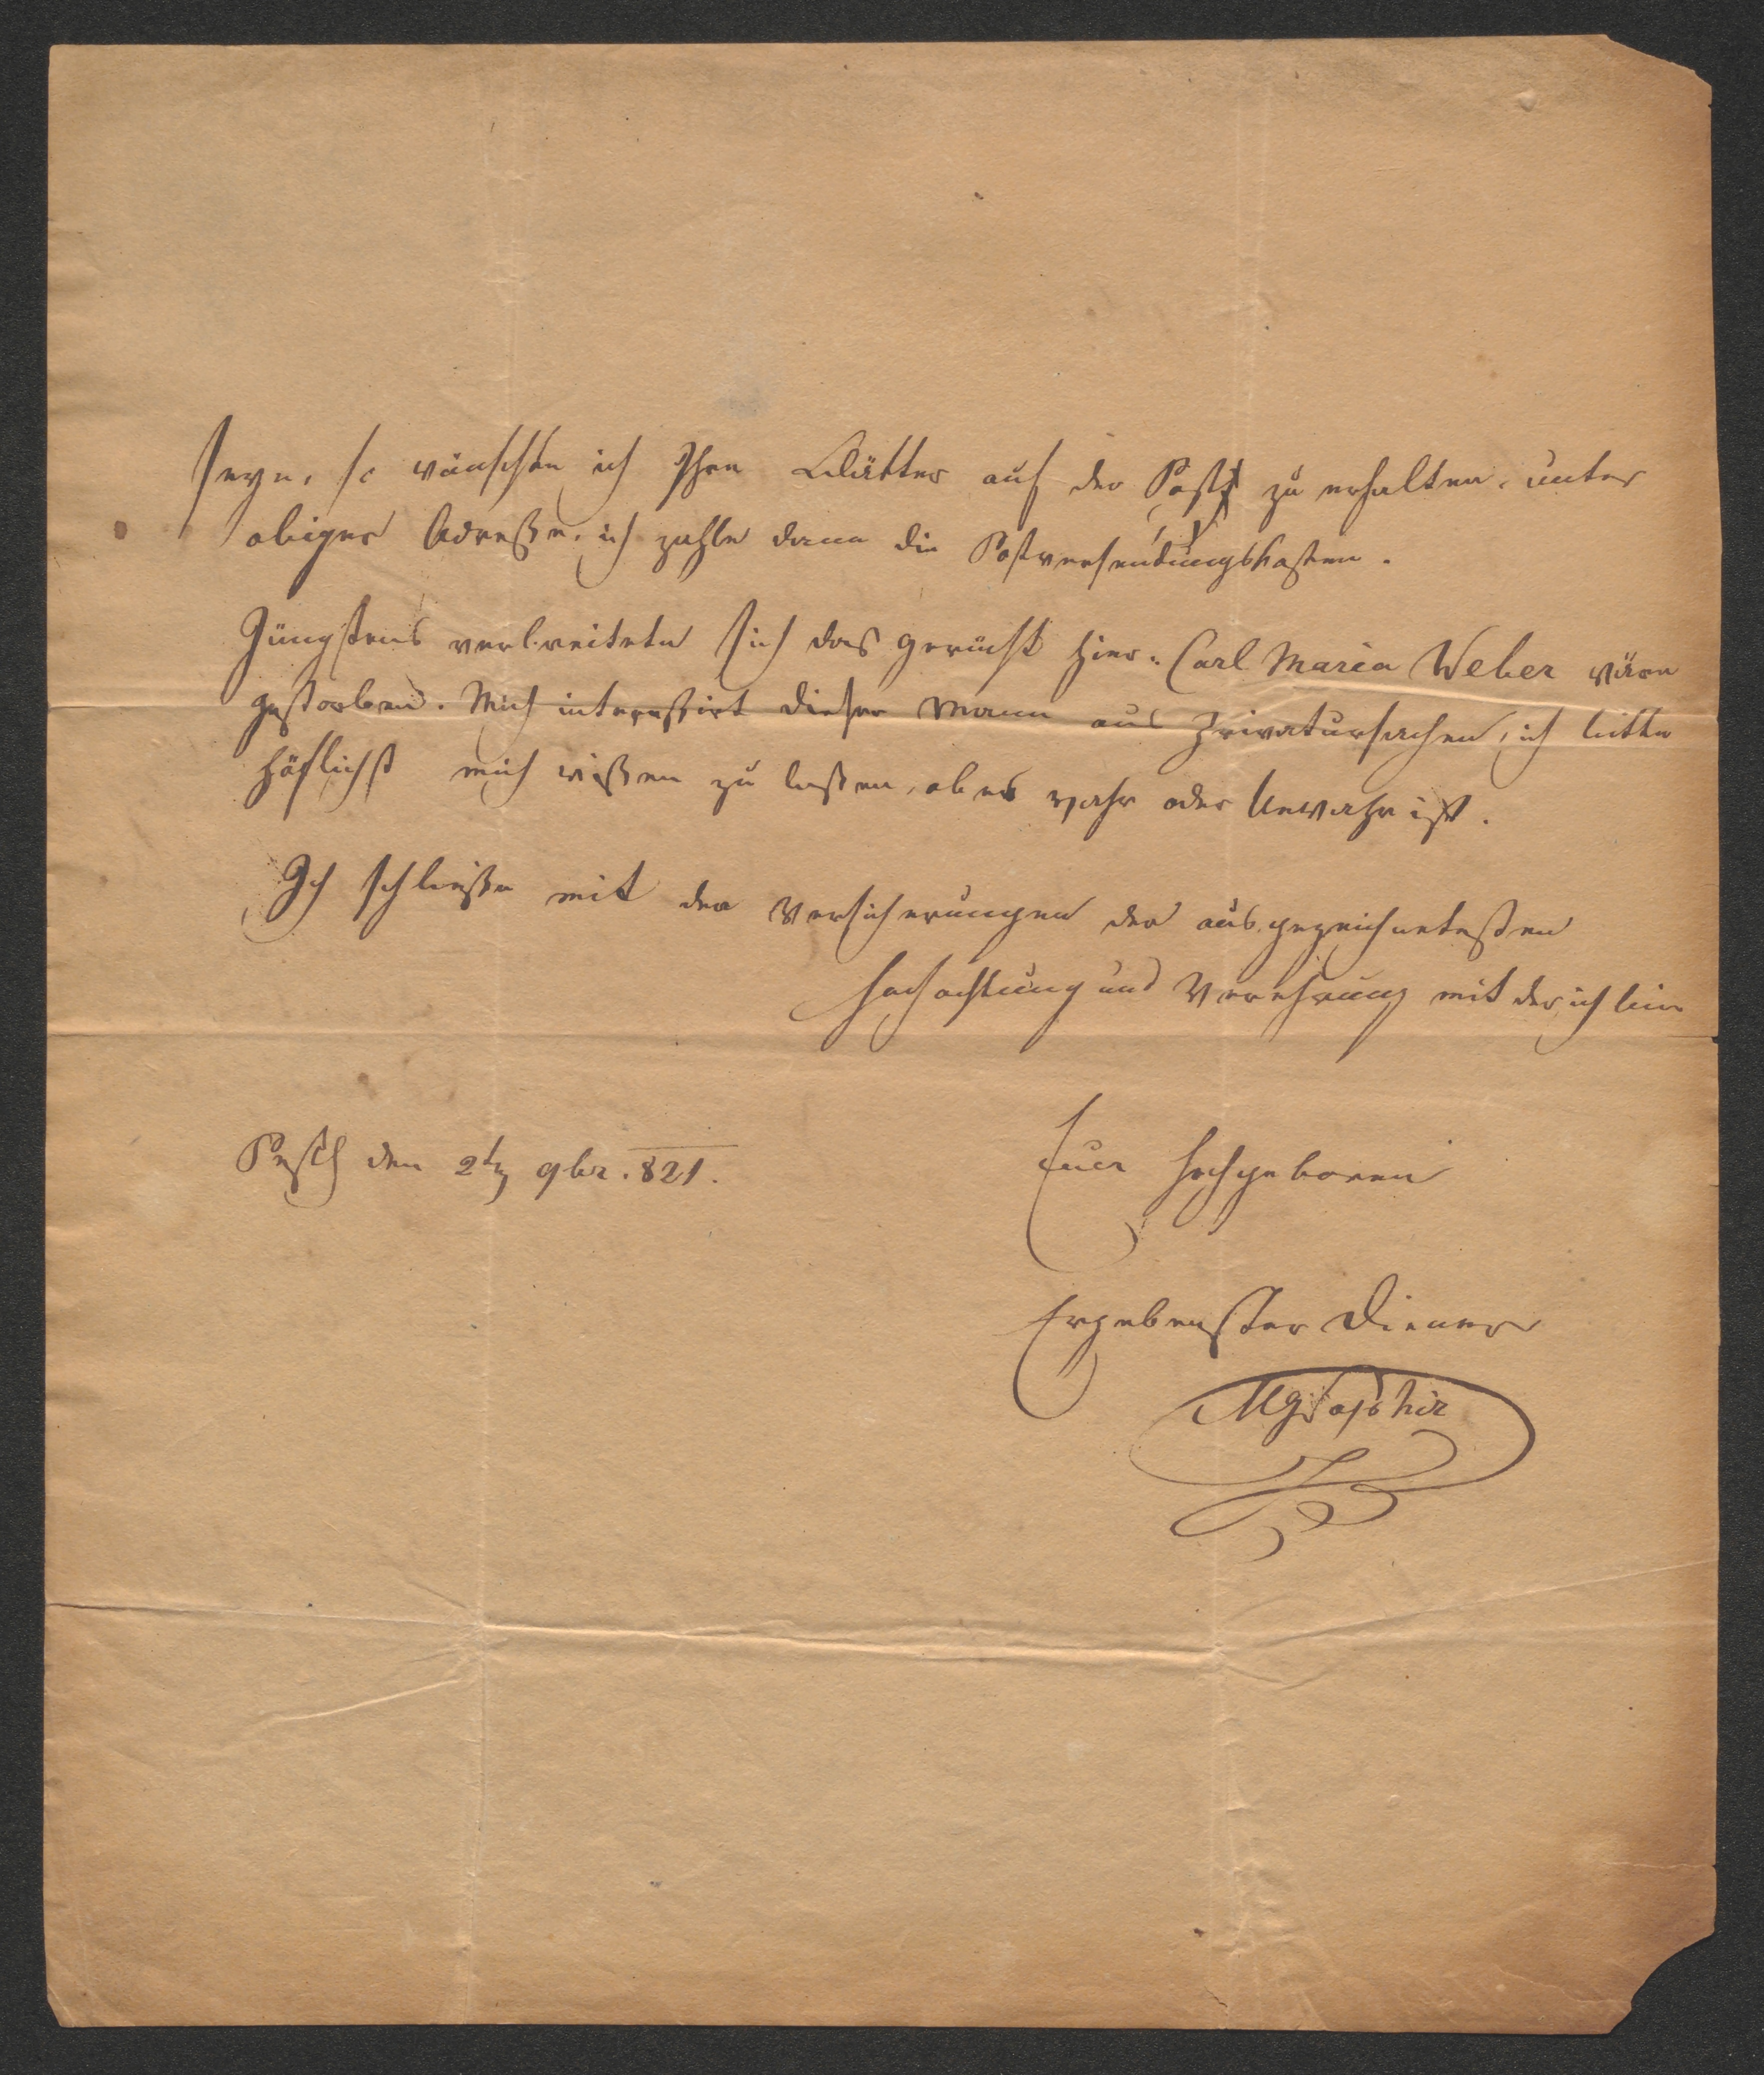 seyn, so wünschte ich Ihre Blätter auf der Post zu erhalten, unter
obiger Adresse, ich zahle dann die Postversendungskosten.
Jüngstens verbreitete sich das gerücht hier: Carl Maria Weber wäre
gestorben. Mich interessirt dieser Mann aus Privatursachen, ich bitte
höflichst mich wißen zu laßen, ob es wahr oder Unwahr ist.
Ich schließe mit den Versicherungen der ausgezeichnetesten
Hochachtung und Verehrung mit der ich bin
Pesth den 2t 9br. 821.
Euer Hochgeboren
Ergebenster Diener
MGSaphir